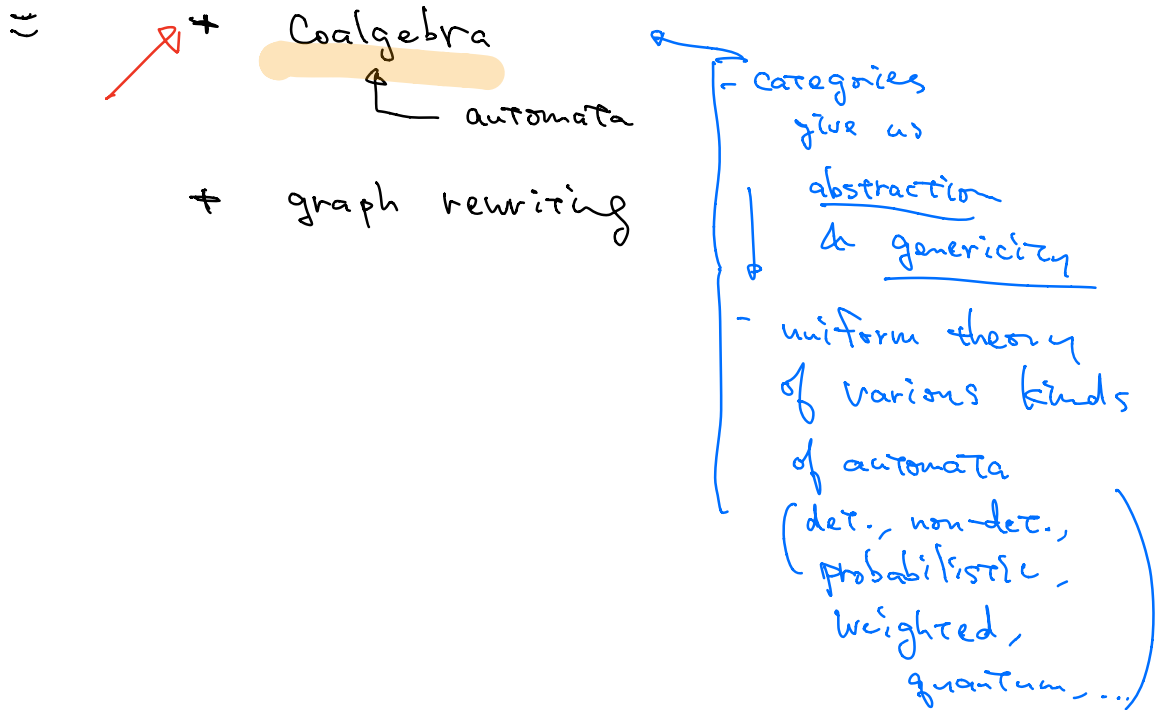 * Coalgebra
automata
* graph rewriting
- categories
give us
abstraction
& genericity
- uniform theory
of various kinds
of automata
(det., non-det.,
probabilistic,
weighted,
quantum, ...)